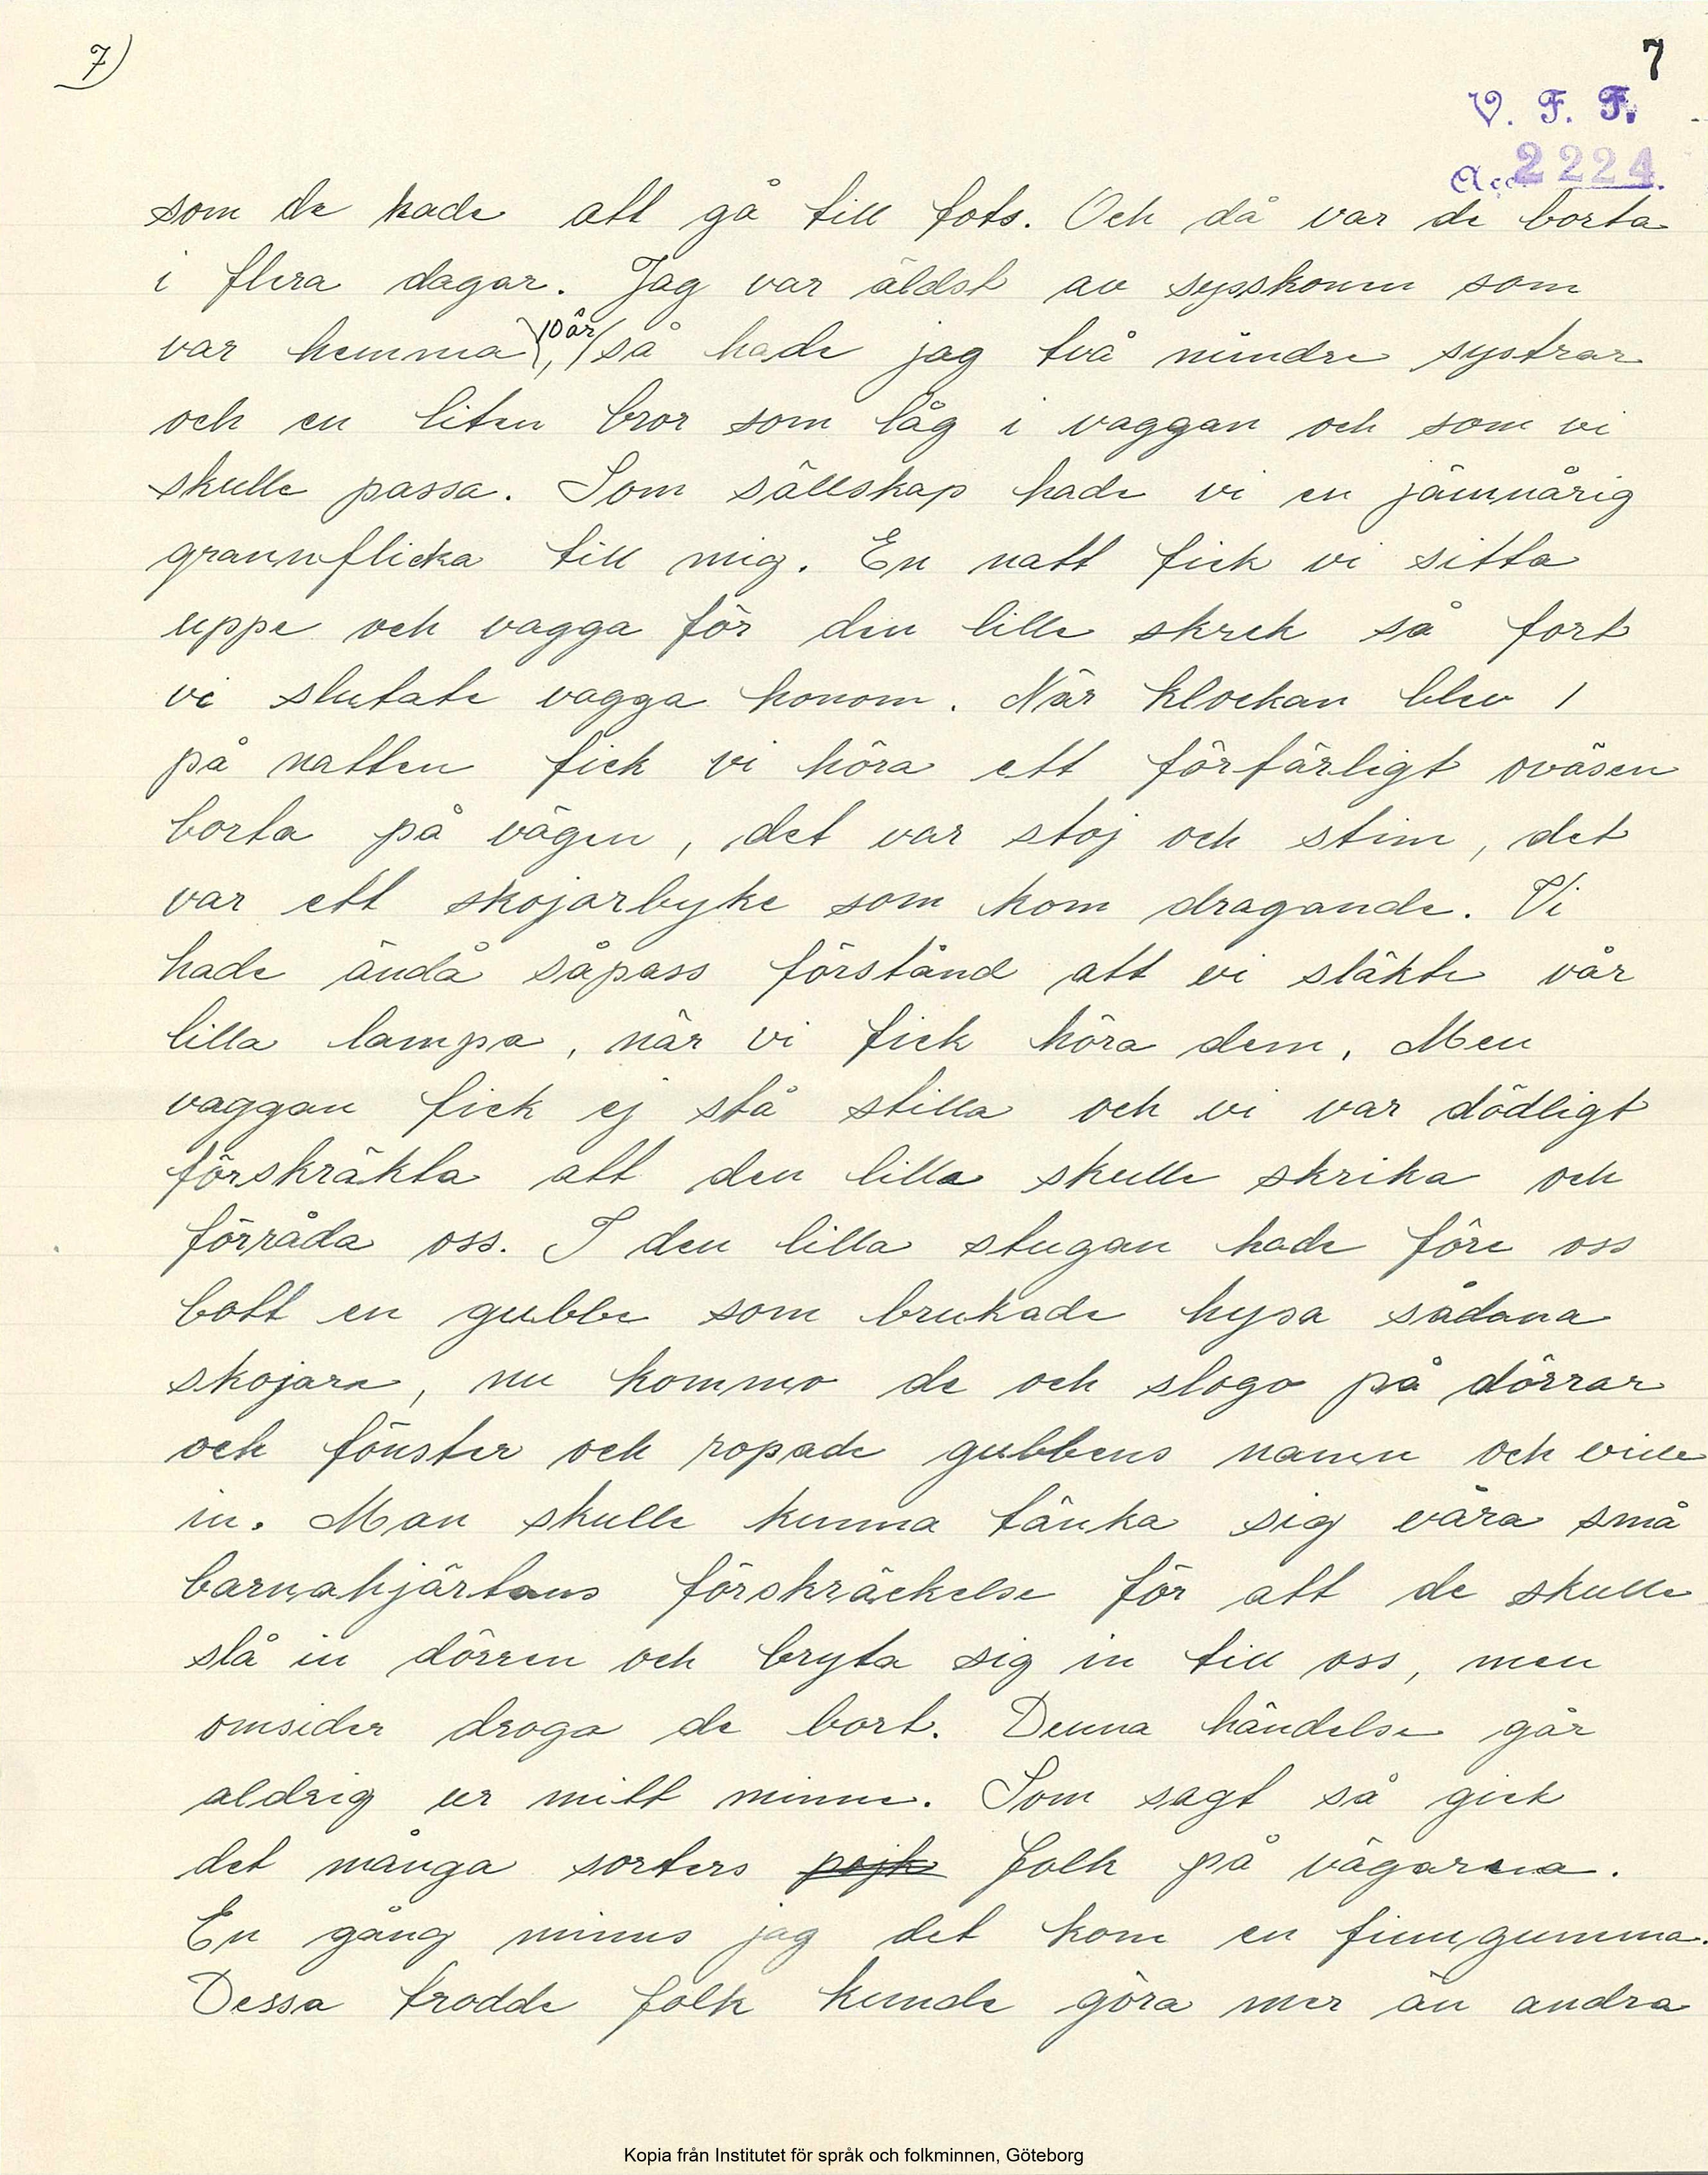 7)
7
V. F. F.
Acc. 2224.
som de hade att gå till fots. Och då var de borta
i flera dagar. Jag var äldst av sysskonen som
var hemma, 10 år, så hade jag två mindre systrar
och en liten bror som låg i vaggan och som vi
skulle passa. Som sällskap hade vi en jämnårig
grannflicka till mig. En natt fick vi sitta
uppe och vagga för den lille skrek så fort
vi slutate vagga honom. När klockan blev 1
på natten fick vi höra ett förfärligt oväsen
borta på vägen, det var stoj och stim, det
var ett skojarbyke som kom dragande. Vi
hade ändå såpass förstånd att vi släkte vår
lilla lampa, när vi fick höra dem. Men
vaggan fick ej stå stilla och vi var dödligt
förskräkta att den lilla skulle skrika och
förråda oss. I den lilla stugan hade före oss
bott en gubbe som brukade hysa sådana
skojare, nu kommo de och slogo på dörrar
och fönster och ropade gubbens namn och ville
in. Man skulle kunna tänka sig våra små
barnahjärtans förskräckelse för att de skulle
slå in dörren och bryta sig in till oss, men
omsider droga de bort. Denna händelse går
aldrig ur mitt minne. Som sagt så gick
det många sorters pojk folk på vägarna.
En gång minns jag det kom en finngumma.
Dessa trodde folk kunde göra mer än andra
Kopia från Institutet för språk och folkminnen, Göteborg